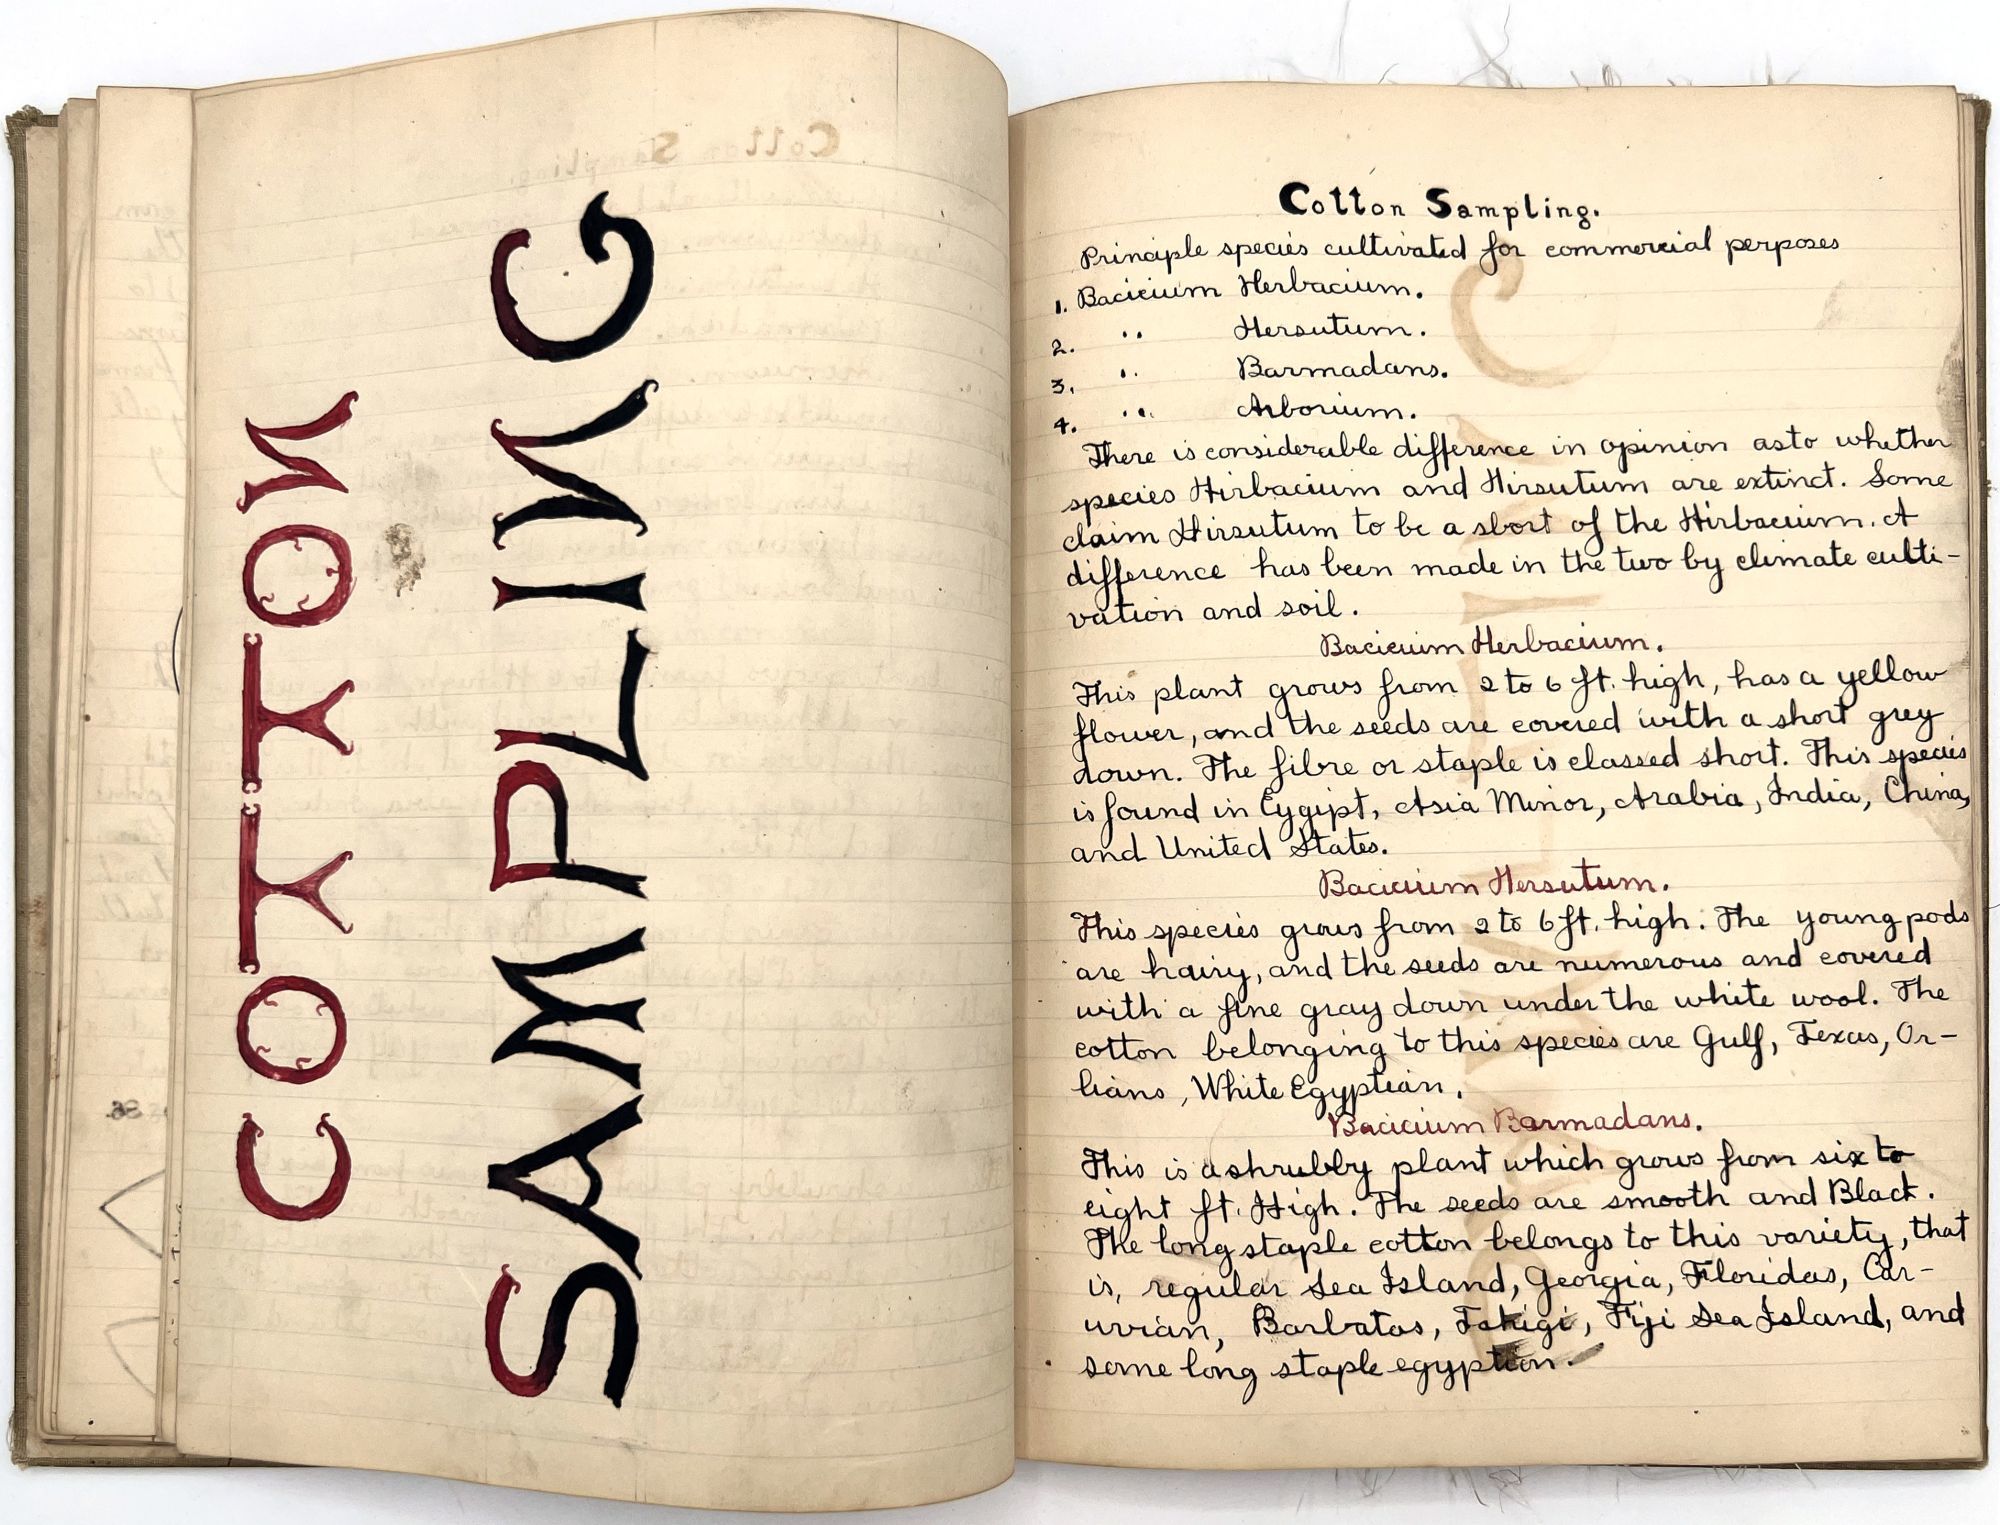 COTTON
SAMPLING
Cotton Sampling.
Principle species cultivated for commercial perposes
1. Bacicium Herbacium.
2. " Hersutum.
3. " Barmadans.
4. " Arborium.
There is considerable difference in opinion as to whether
species Hirbacium and Hirsutum are extinct. Some
claim Hirsutum to be a sbort of the Hirbacium. A
difference has been made in the two by climate culti-
vation and soil.
Bacicium Herbacium.
This plant grows from 2 to 6 ft. high, has a yellow
flower, and the seeds are covered with a short grey
down. The fibre or staple is classed short. This species
is found in Eygipt, Asia Minor, Arabia, India, China,
and United States.
Bacicium Hersutum.
This species grows from 2 to 6 ft. high. The young pods
are hairy, and the seeds are numerous and covered
with a fine gray down under the white wool. The
cotton belonging to this species are Gulf, Texas, Or-
lians, White Egyptian.
Bacicium Barmadans.
This is a shrubby plant which grows from six to
eight ft. High. The seeds are smooth and Black.
The long staple cotton belongs to this variety, that
is, regular Sea Island, Georgia, Floridas, Car-
uvian, Barbatas, Fiji Sea Island, and
some long staple egyptian.